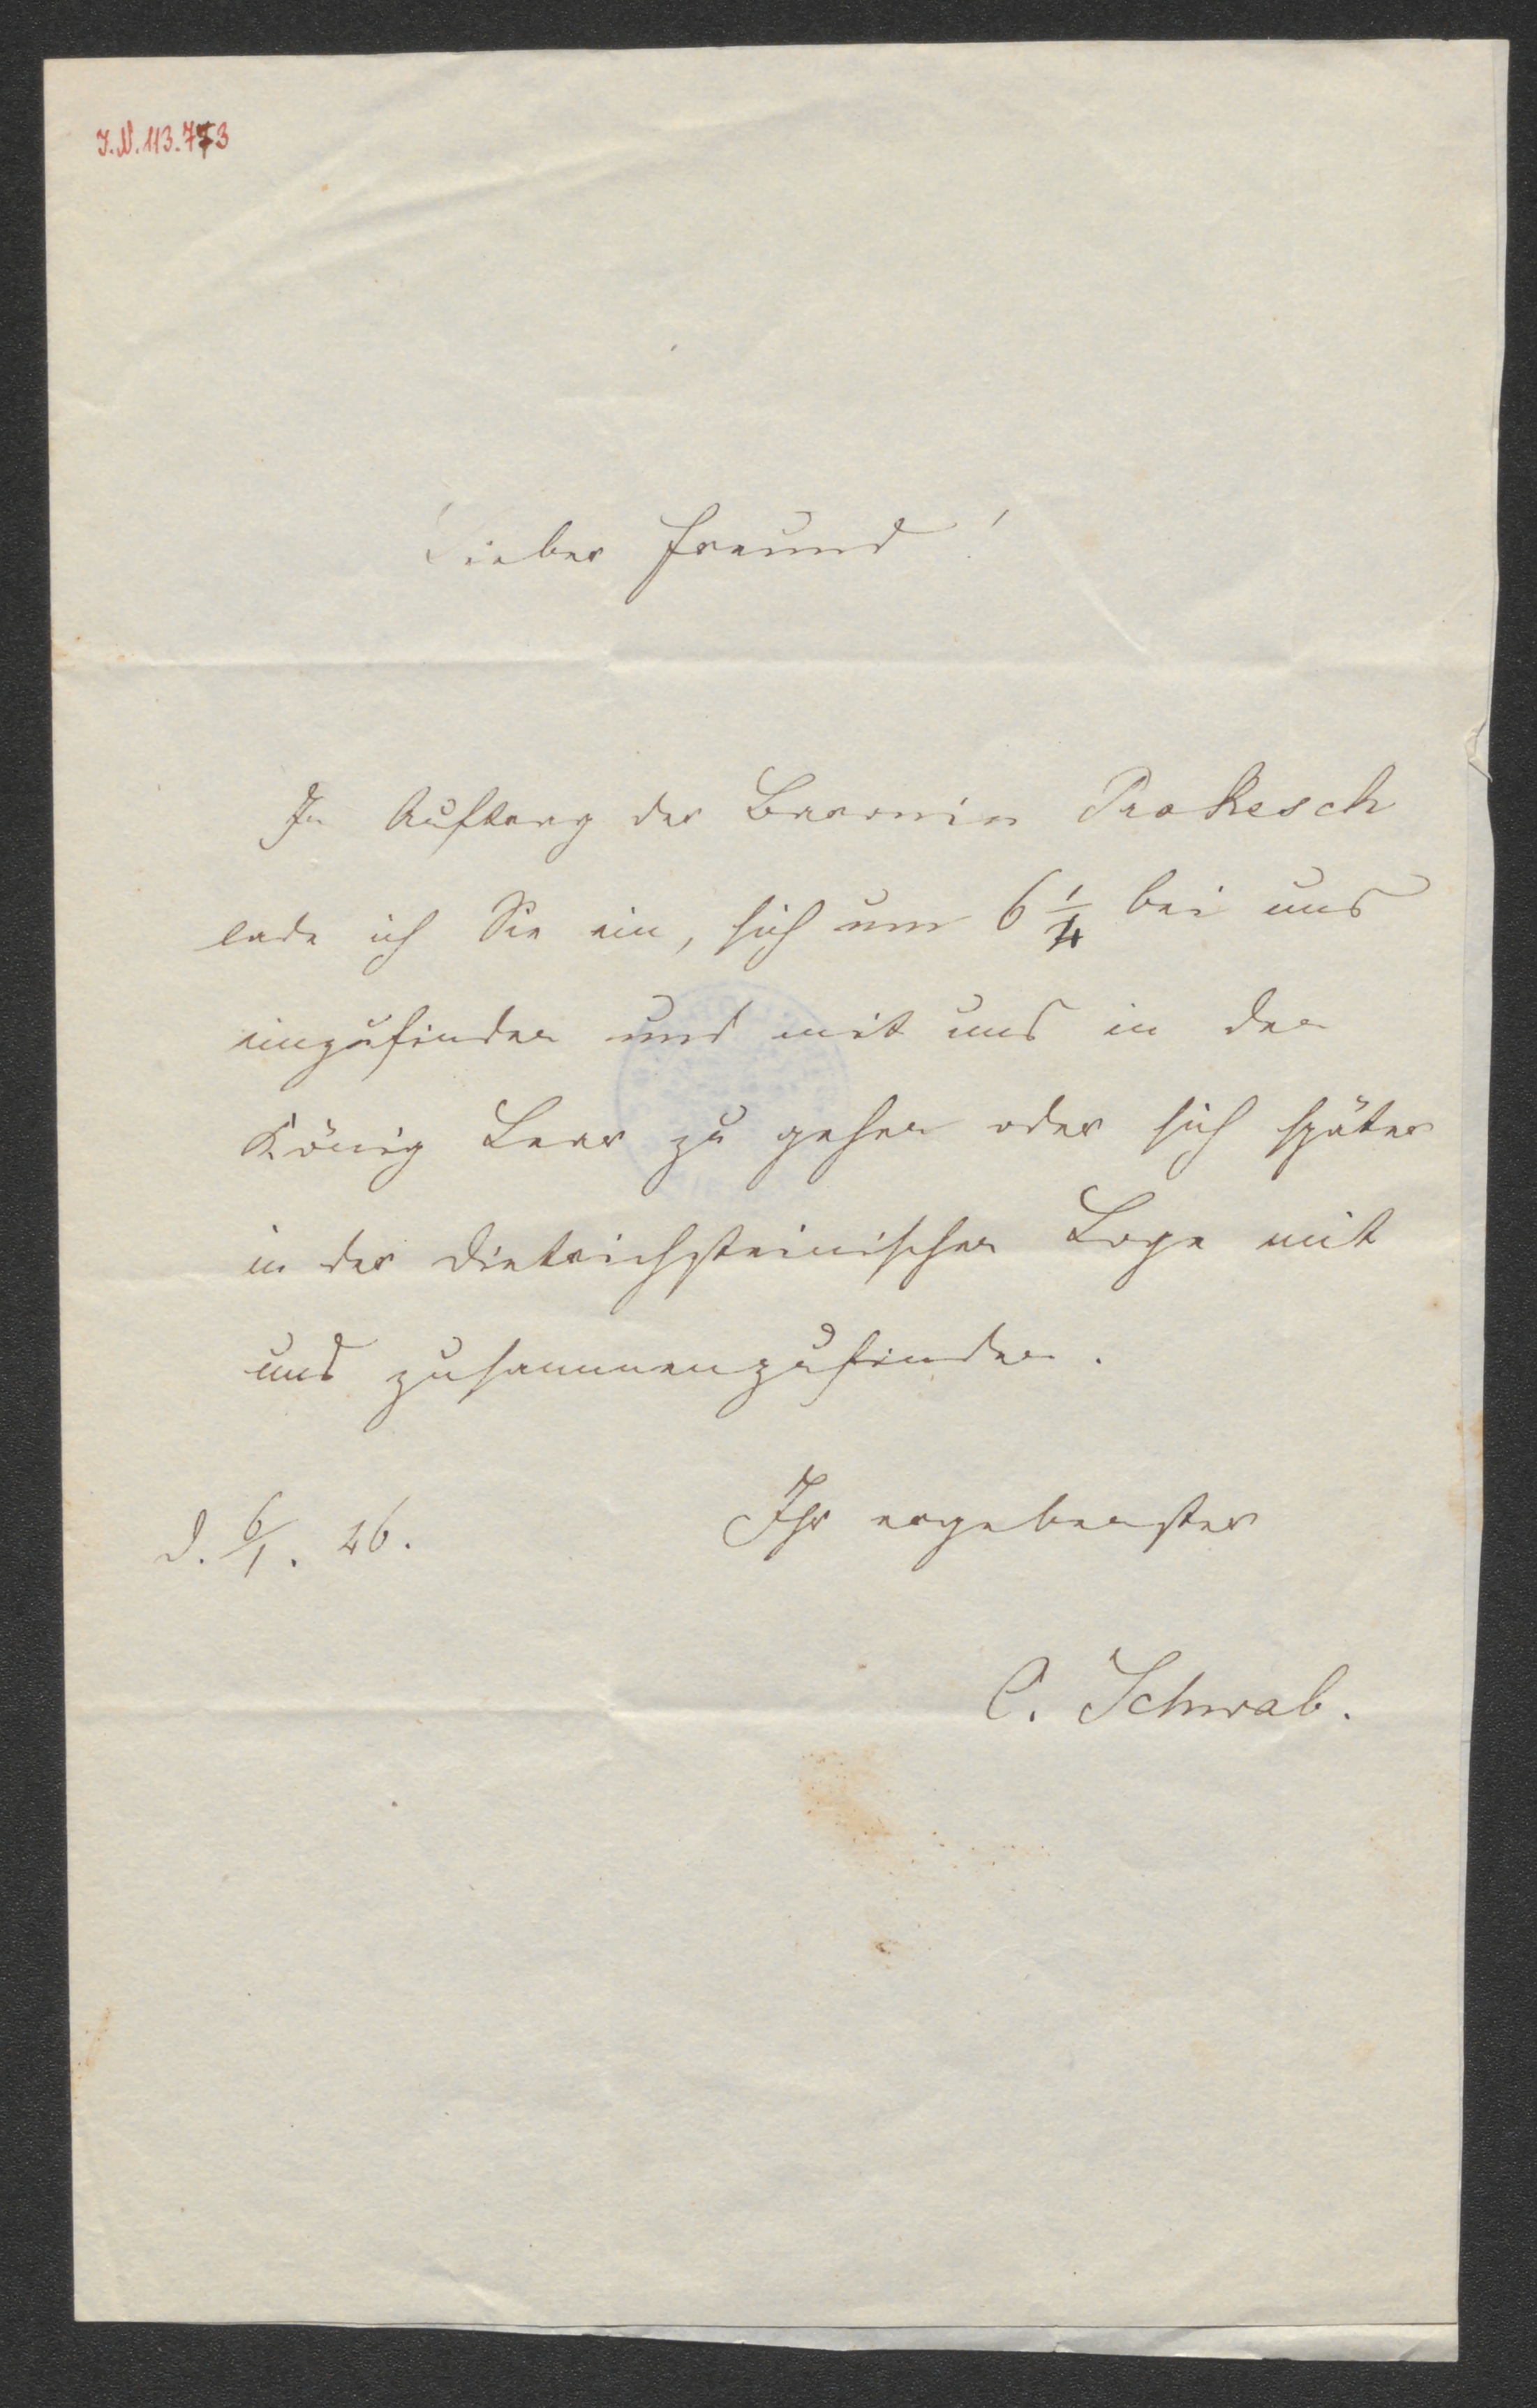 I.N. 113.773
Lieber Freund!
In Auftrag der Baronin Prokesch
lade ich Sie ein, sich um 6 1/4 bei uns
einzufinden und mit uns in den
König Lear zu gehen oder sich später
in der Dietrichsteinischen Loge mit
uns zusammenzufinden.
Ihr ergebenster
d. 6/1. 46.
C. Schwab.